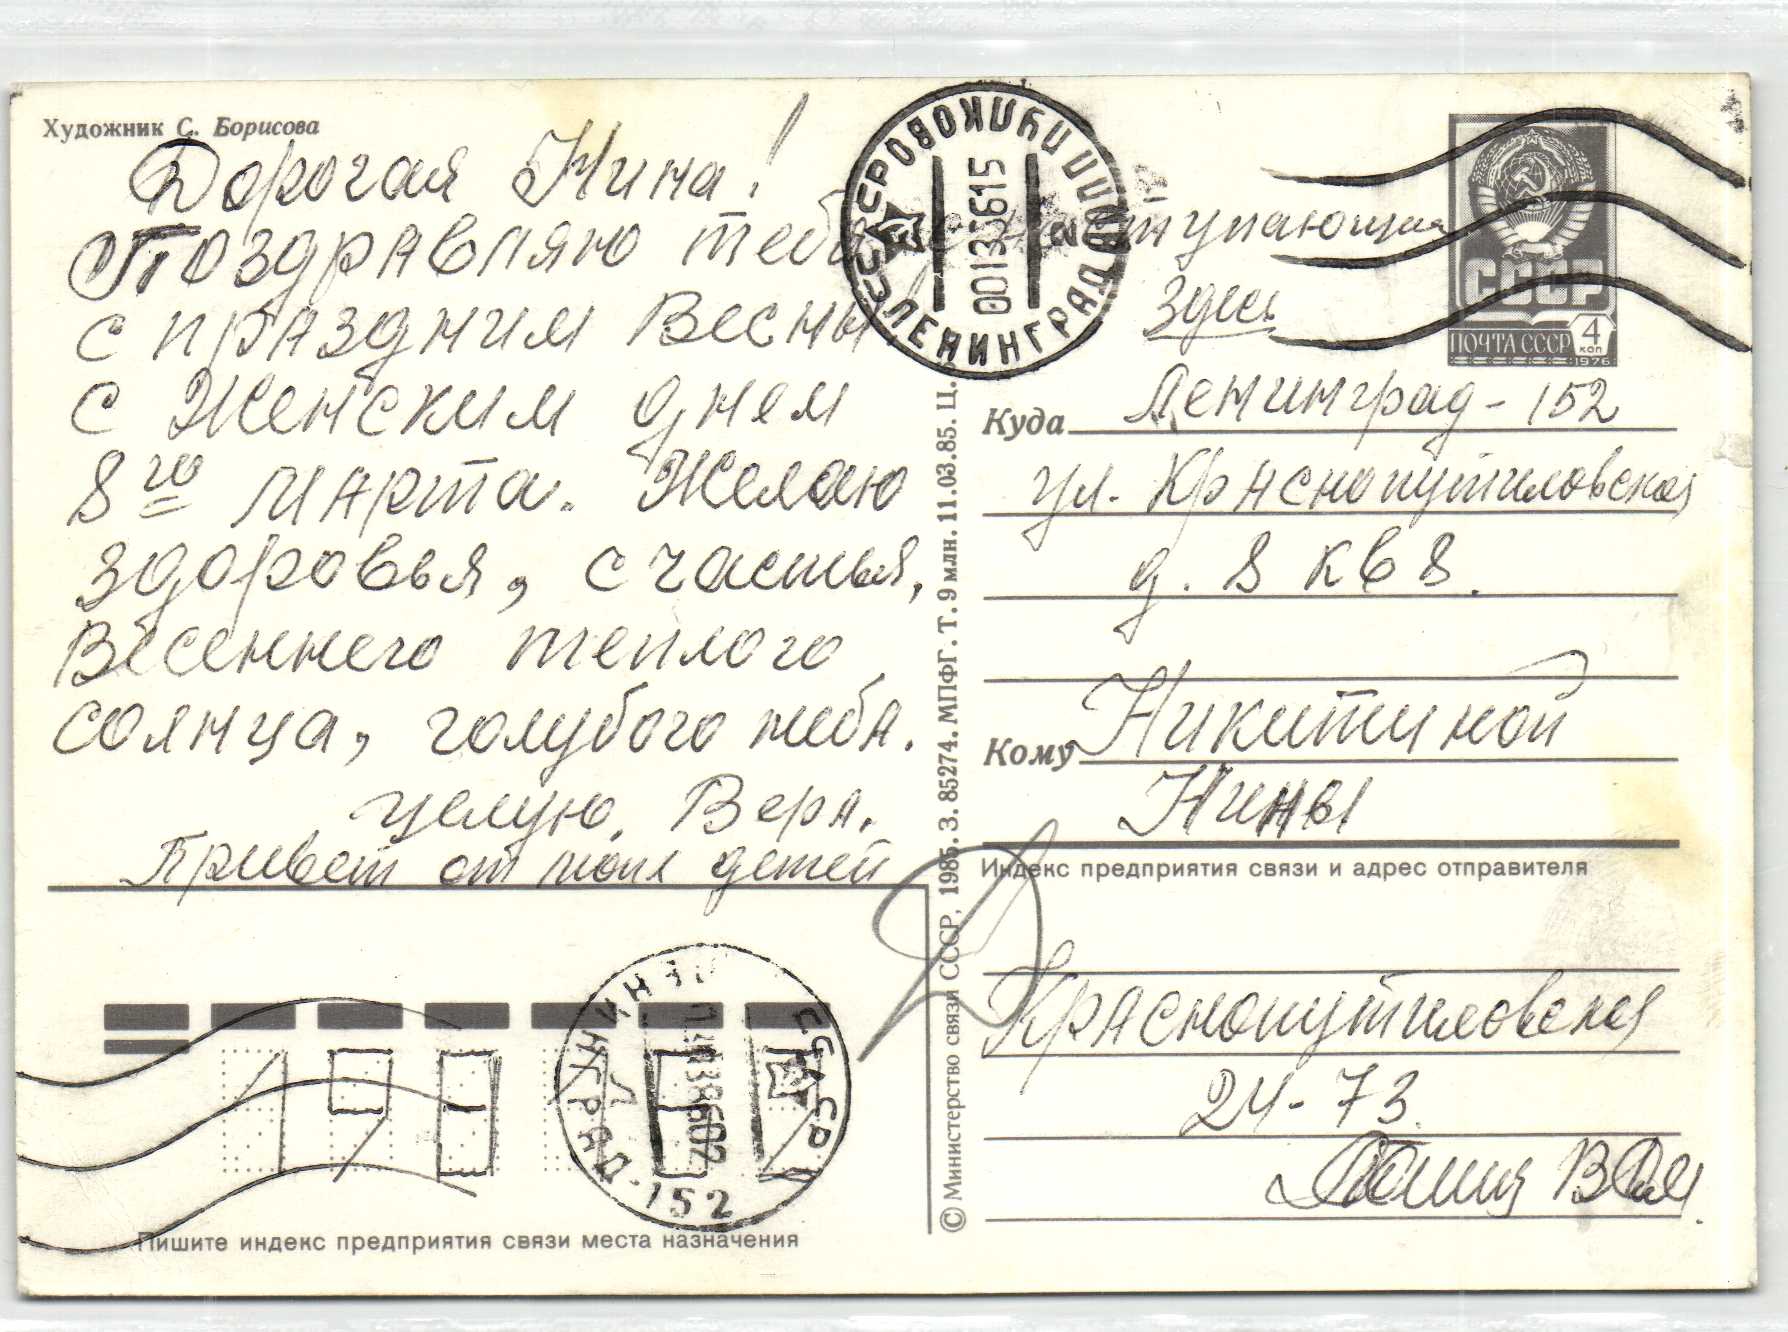 Художник С. Борисова
Дорогая Нина!
Поздравляю тебя с наступающим
с праздним Весны
с Женским днем
8го марта. Желаю
здоровья, счастья,
Весеннего теплого
солнца, голубого неба.
Целую. Вера.
Привет от моих детей
Пишите индекс предприятия связи места назначения
ЛЕНИНГРАД-152
СССР
© Министерство связи СССР, 1985. З. 85274. МПФГ. Т. 9 млн. 11.03.85. Ц.
СССР ЛЕНИНГРАД
001338615
ПОЧТА СССР
4 коп
1976
Здесь
Куда Ленинград-152
ул. Краснопутиловская
д. 8 кв 8.
Кому Никитиной
Нины
Индекс предприятия связи и адрес отправителя
Краснопутиловская
24-73.